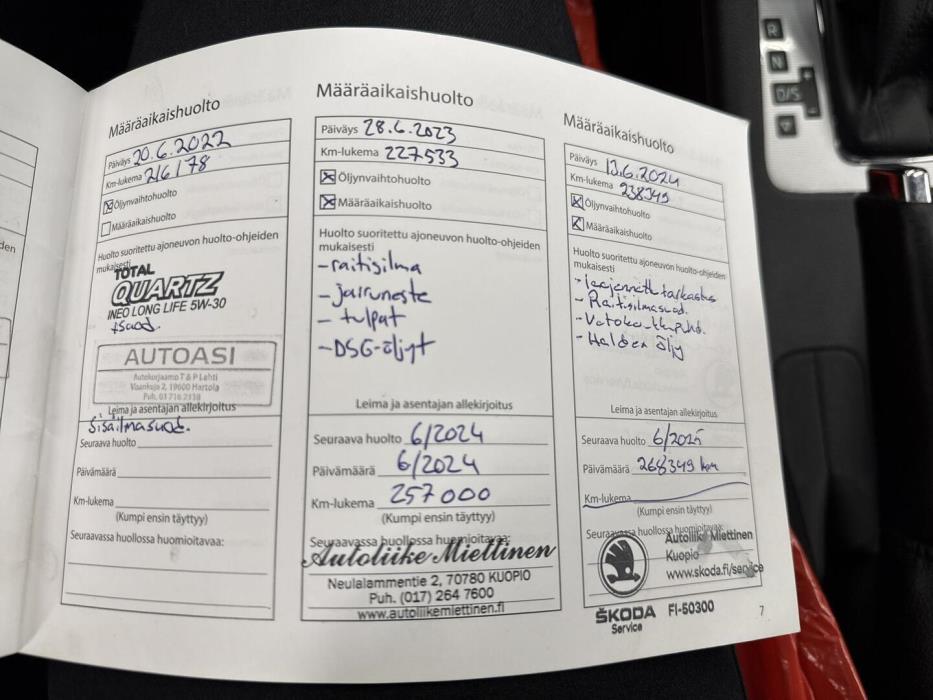 den
Määräaikaishuolto
Päiväys 20.6.2022
Km-lukema 216178
Öljynvaihtohuolto
Määräaikaishuolto
Huolto suoritettu ajoneuvon huolto-ohjeiden
mukaisesti
TOTAL
QUARTZ
INEO LONG LIFE 5W-30
+suod.
AUTOASI
Autokorjaamo T & P Lehti
Vaankuja 2, 19600 Hartola
Puh. 01 716 2118
Leima ja asentajan allekirjoitus
Sisäilmasuod.
Seuraava huolto
Päivämäärä
Km-lukema
(Kumpi ensin täyttyy)
Seuraavassa huollossa huomioitavaa:
Määräaikaishuolto
Päiväys 28.6.2023
Km-lukema 227533
Öljynvaihtohuolto
Määräaikaishuolto
Huolto suoritettu ajoneuvon huolto-ohjeiden
mukaisesti
-raitisilma
-jarruneste
-tulpat
-DSG-öljyt
Leima ja asentajan allekirjoitus
Seuraava huolto 6/2024
Päivämäärä 6/2024
Km-lukema 257000
(Kumpi ensin täyttyy)
Seuraavassa huollossa huomioitavaa:
Autoliike Miettinen
Neulalammentie 2, 70780 KUOPIO
Puh. (017) 264 7600
www.autoliikemiettinen.fi
Määräaikaishuolto
Päiväys 13.6.2024
Km-lukema 238349
Öljynvaihtohuolto
Määräaikaishuolto
Huolto suoritettu ajoneuvon huolto-ohjeiden
mukaisesti
-laajennettu tarkastus
-Raitisilmasuod.
-Haldex öljy
Leima ja asentajan allekirjoitus
Seuraava huolto 6/2025
Päivämäärä 268349 km
Km-lukema
(Kumpi ensin täyttyy)
Seuraavassa huollossa huomioitavaa:
Autoliike Miettinen
Kuopio
www.skoda.fi/service
ŠKODA FI-50300
Service
7
R
N
D/S